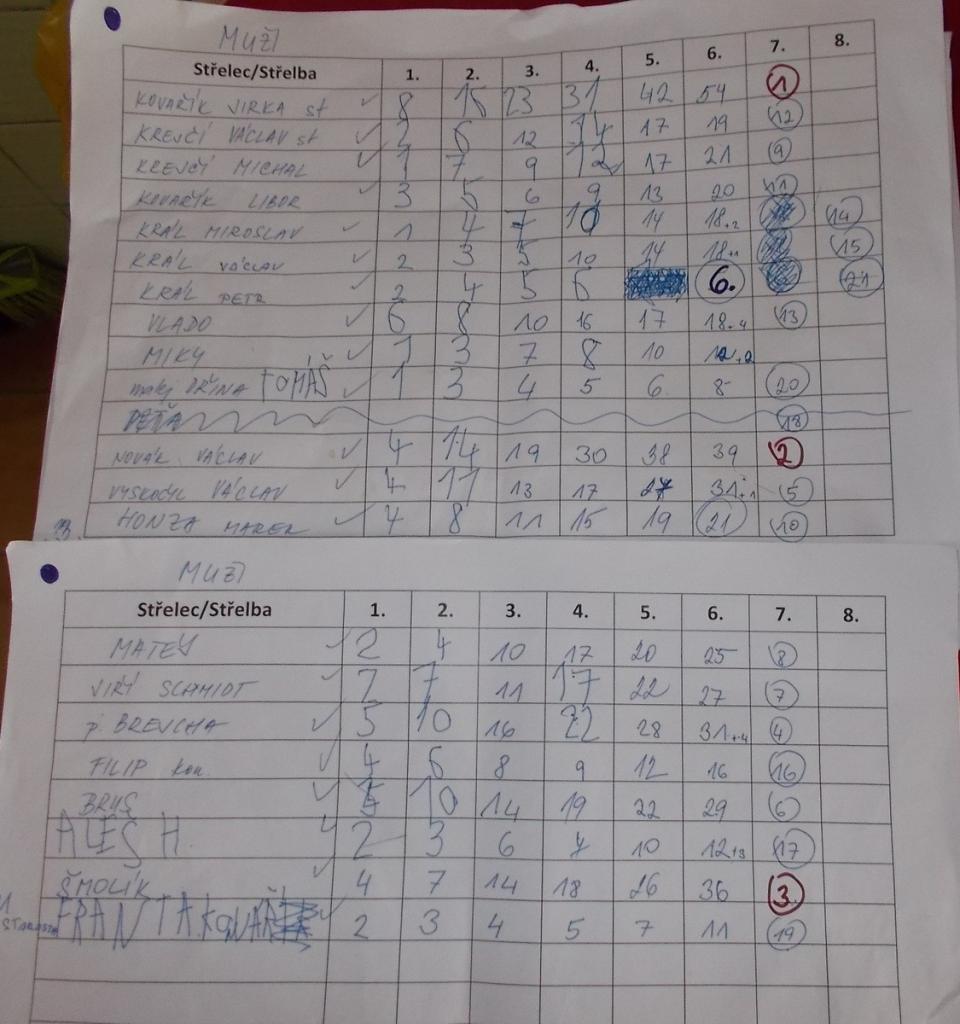 MUŽI
Střelec/Střelba 1. 2. 3. 4. 5. 6. 7. 8.
KOVAŘÍK JIRKA st 8 15 23 31 42 54 1
KREJČÍ VÁCLAV st 2 6 12 14 17 19 12
KREJČÍ MICHAL 1 7 9 12 17 21 9
KOVAŘÍK LIBOR 3 5 6 9 13 20 11
KRÁL MIROSLAV 1 4 7 10 14 18+2 14
KRÁL VÁCLAV 2 3 5 10 14 18+1 15
KRÁL PETR 2 4 5 6 6. 21
VLADO 6 8 10 16 17 18+4 13
MIKY 1 3 7 8 10 12+2
TOMÁŠ 1 3 4 5 6 8 20
PEŤA 18
NOVÁK VÁCLAV 4 14 19 30 38 39 2
VYSKOČIL VÁCLAV 4 11 13 17 27 31+1 5
HONZA MAREK 4 8 11 15 19 21 10
MUŽI
Střelec/Střelba 1. 2. 3. 4. 5. 6. 7. 8.
MATEJ 2 4 10 17 20 25 8
JIŘÍ SCHMIDT 2 7 11 17 22 27 7
p. BREJCHA 5 10 16 22 28 31+4 4
FILIP kov. 4 6 8 9 12 16 16
BRUS 5 10 14 19 22 29 6
ALEŠ H. 2 3 6 7 10 12+3 17
ŠMOLÍK 4 7 14 18 26 36 3
FRANTA KOVAŘ 2 3 4 5 7 11 19